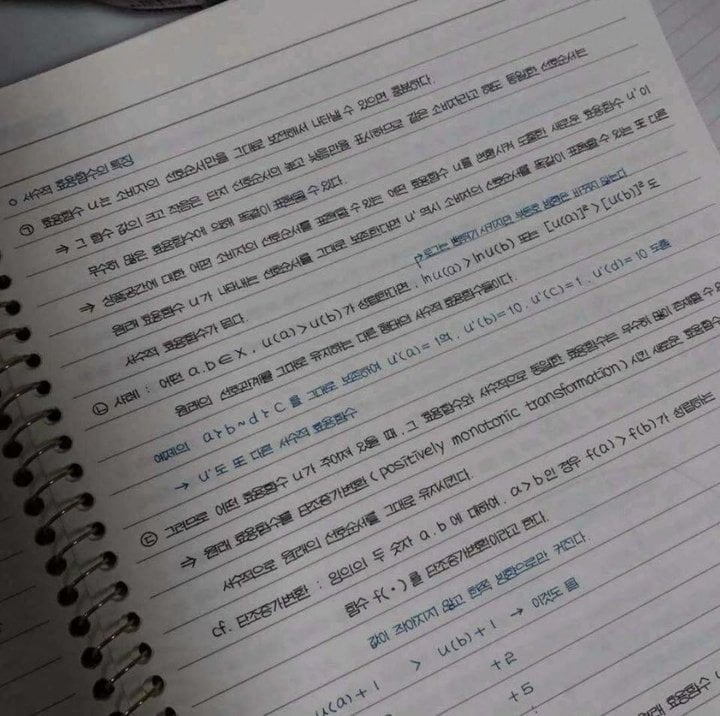 ○ 서수적 효용함수의 특징
㉠ 효용함수 u는 소비자의 선호순서만을 그대로 보전해서 나타낼 수 있으면 충분하다.
⇒ 그 함수 값의 크고 작음은 단지 선호순서의 높고 낮음만을 표시하므로 같은 소비자라고 해도 동일한 선호순서는
무수히 많은 효용함수에 의해 똑같이 표현될 수 있다.
⇒ 상품공간에 대한 어떤 소비자의 선호순서를 표현할 수 있는 어떤 효용함수 u를 변환시켜 도출한 새로운 효용함수 u'이
원래 효용함수 u가 나타내는 선호순서를 그대로 보존한다면 u' 역시 소비자의 선호순서를 똑같이 표현할 수 있는 또 다른
서수적 효용함수가 된다.
로그는 밑이 사라지면 부등호 방향은 바뀌지 않는다
㉡ 사례 : 어떤 a, b ∈ X, u(a) > u(b)가 성립한다면, ln u(a) > ln u(b) 또는 [u(a)]² > [u(b)]² 도
원래의 선호관계를 그대로 유지하는 다른 형태의 서수적 효용함수들이다.
예제의 a≻b~d≻c 를 그대로 보존하여 u'(a) = 19, u'(b) = 10, u'(c) = 1, u'(d) = 10 도출
→ u'도 또 다른 서수적 효용함수
㉢ 그러므로 어떤 효용함수 u가 주어져 있을 때, 그 효용함수와 서수적으로 동일한 효용함수는 무수히 많이 존재할 수
⇒ 원래 효용함수를 단조증가변환(positively monotonic transformation) 시킨 새로운 효용함수
서수적으로 원래의 선호순서를 그대로 유지시킨다.
cf. 단조증가변환 : 임의의 두 숫자 a, b 에 대하여, a>b 인 경우 f(a) > f(b)가 성립하는
함수 f(·)를 단조증가변환이라고 한다.
값이 작아지지 않고 한쪽 방향으로만 커진다.
u(a)+1 > u(b)+1 → 이것도 됨
+2
+5
원래 효용함수